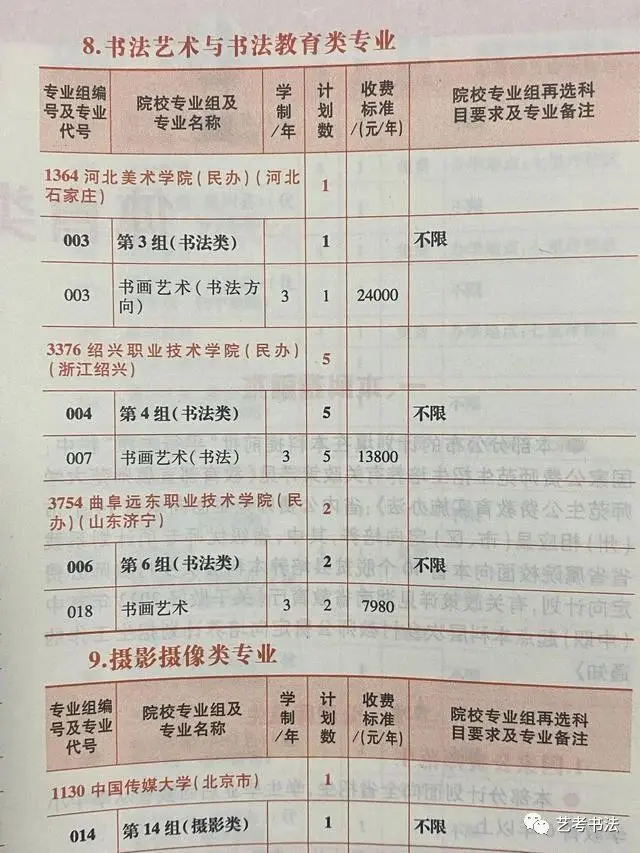 8.书法艺术与书法教育类专业
专业组编号及专业代号 院校专业组及专业名称 学制/年 计划数 收费标准/(元/年) 院校专业组再选科目要求及专业备注
1364 河北美术学院(民办)(河北石家庄) 1
003 第3组(书法类) 1 不限
003 书画艺术(书法方向) 3 1 24000
3376 绍兴职业技术学院(民办)(浙江绍兴) 5
004 第4组(书法类) 5 不限
007 书画艺术(书法) 3 5 13800
3754 曲阜远东职业技术学院(民办)(山东济宁) 2
006 第6组(书法类) 2 不限
018 书画艺术 3 2 7980
9.摄影摄像类专业
专业组编号及专业代号 院校专业组及专业名称 学制/年 计划数 收费标准/(元/年) 院校专业组再选科目要求及专业备注
1130 中国传媒大学(北京市) 1
014 第14组(摄影类) 1 不限
艺考书法